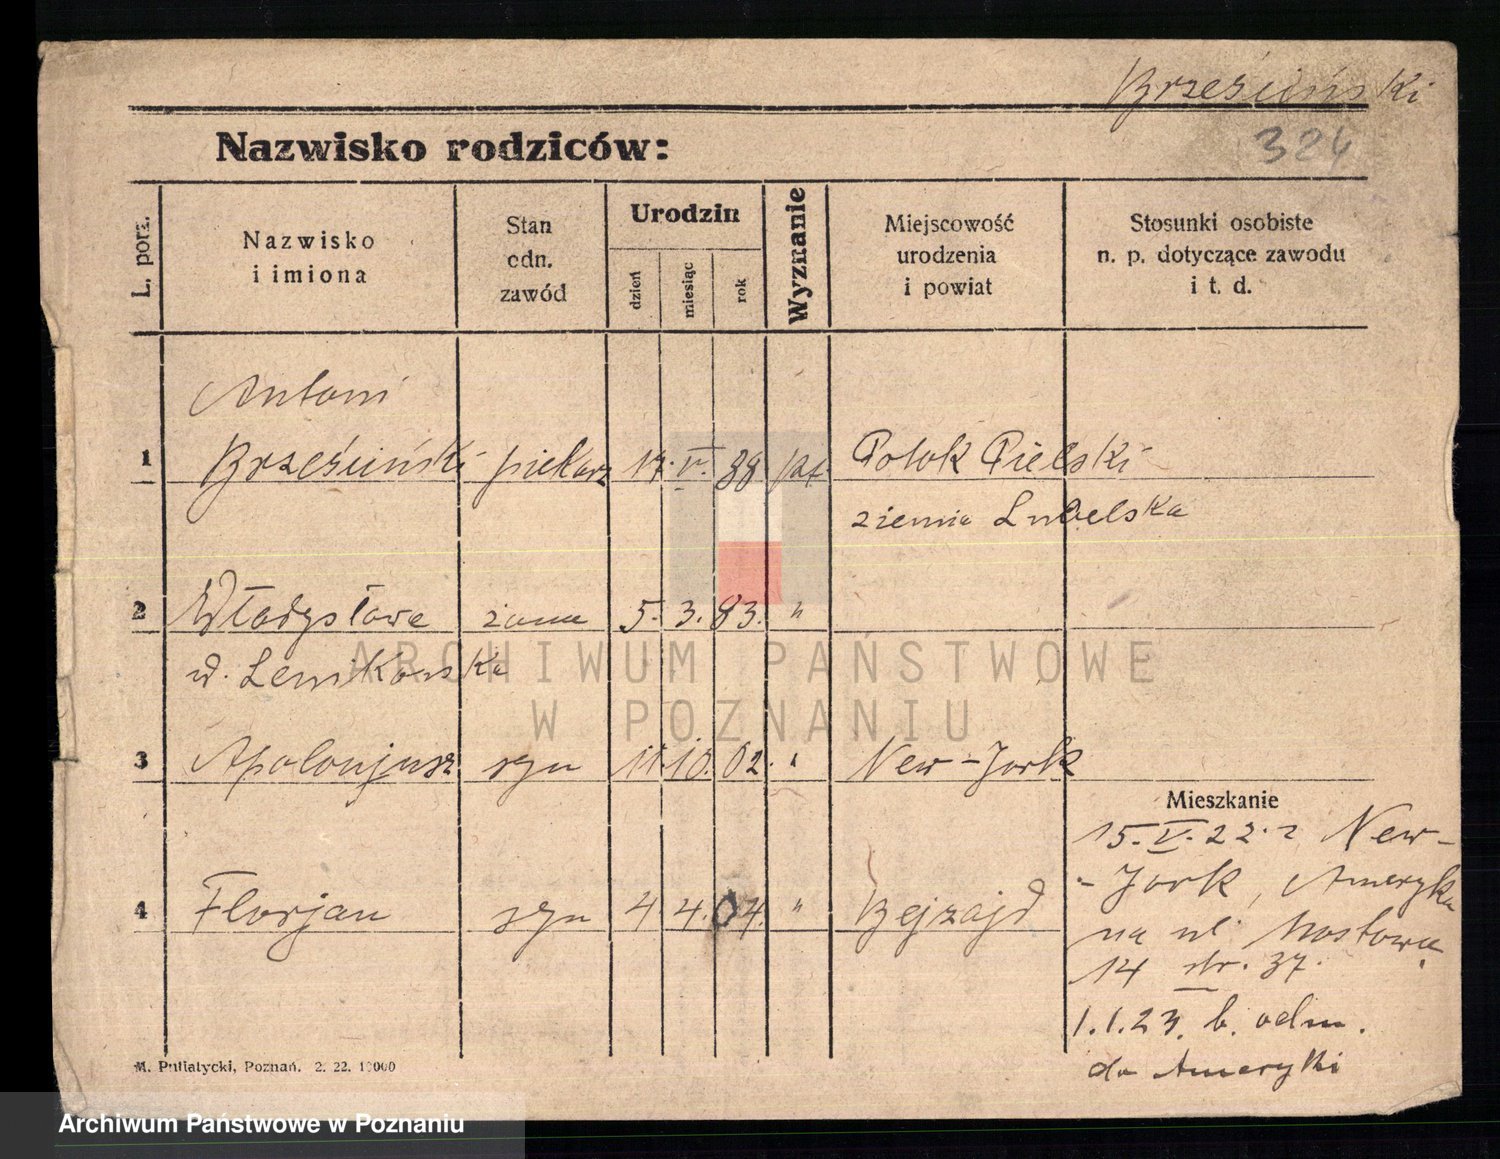 Brzesiński
324
Nazwisko rodziców:
L. porz.
Nazwisko
i imiona
Stan
odn.
zawód
Urodzin
dzień
miesiąc
rok
Wyznanie
Miejscowość
urodzenia
i powiat
Stosunki osobiste
n. p. dotyczące zawodu
i t. d.
Antoni
1 Brzesiński piekarz 17. V. 88 kat. Potok
ziemia Lubelska
2 Władysława żona 5. 3. 83. "
3 Apolonjusz syn 11 10. 02. " New-Jork
Mieszkanie
15. V. 22. z New-
-Jork, Ameryka
na ul. Mostowa
14 str. 37.
4 Florjan syn 4 4. 04. "
1.1.23. b. odm.
do Ameryki
M. Putiatycki, Poznań. 2. 22. 10000
ARCHIWUM PAŃSTWOWE
W POZNANIU
Archiwum Państwowe w Poznaniu